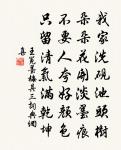 我家洗硯池頭樹
朵朵花開淡墨痕
不要人夸好顏色
只留清氣滿乾坤
王冕墨梅其三詞典網